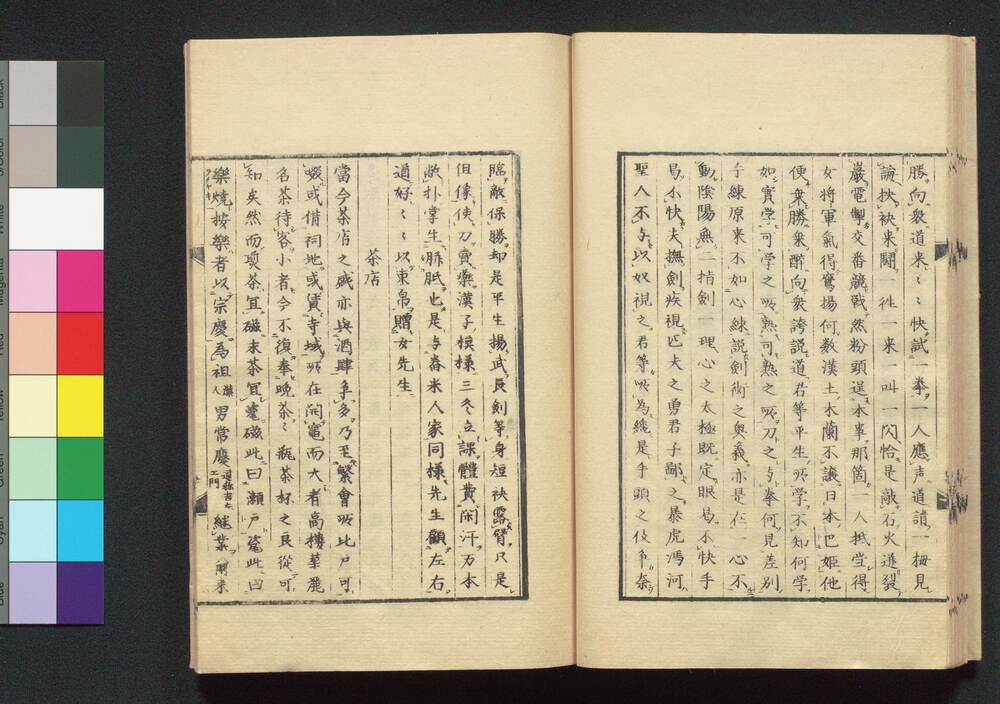 勝向衆道来〻快試一拳一人應声道請一梅見
論扶袂来闘一徃一来一叫一閃恰是敵石火迸裂
巌電掣交番競戦然粉頭逞本事那箇一人抵当得
女将軍氣得奮揚何数漢土木蘭不譲日本巴姫他
便衆勝衆酔向衆誇説道君等平生所学不知何学
如實学可学之所熟可熟之所刀之与拳何見差別
子練原来不如心練説劍術之奥義亦是在一心不
動陰陽無二指劍一理心之太極既定眼易不快手
易不快夫撫劍疾視匹夫之勇君子鄙之暴虎馮河
聖人不与以奴視之君等所為纔是手頭之伎巾奈
臨敵保勝却是平生揚武長剣等身短袂露臂只是
但像使刀賣薬漢子模様三冬立課體費閑汗万本
敵扑掌生胼胝也是与舂米人家同様先生顧左右
道好〻〻以束帛贈女先生
茶店
當今茶店之盛亦與酒肆争多乃至繁會所比戸可
綴或借祠地或賃寺域所在開竈而大者高樓華麗
名茶待客小者今不復奉晩茶〻瓶茶杯之良従可
知矣然而煎茶宜磁末茶宜瓷磁此曰瀬戸瓷此曰
樂焼按樂者以宗慶為祖 漢人 男常慶 道称吉左エ門 継業爾来